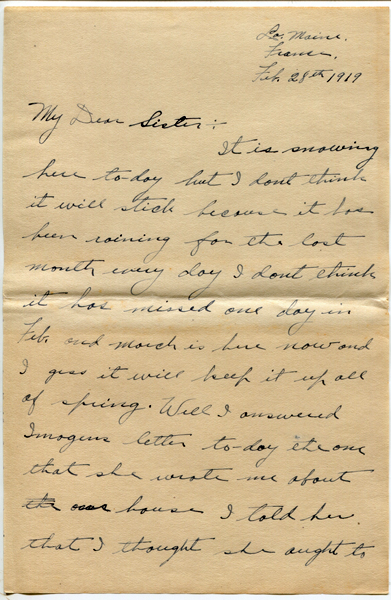 La. Maine.
France.
Feb. 28th 1919
My Dear Sister:-
It is snowing
here to-day but I dont think
it will stick because it has
been raining for the last
month every day I dont think
it has missed one day in
Feb. and march is here now and
I gess it will keep it up all
of spring. Well I answered
Imogens letter to-day the one
that she wrote me about
the our house I told her.
that I thought she ought to